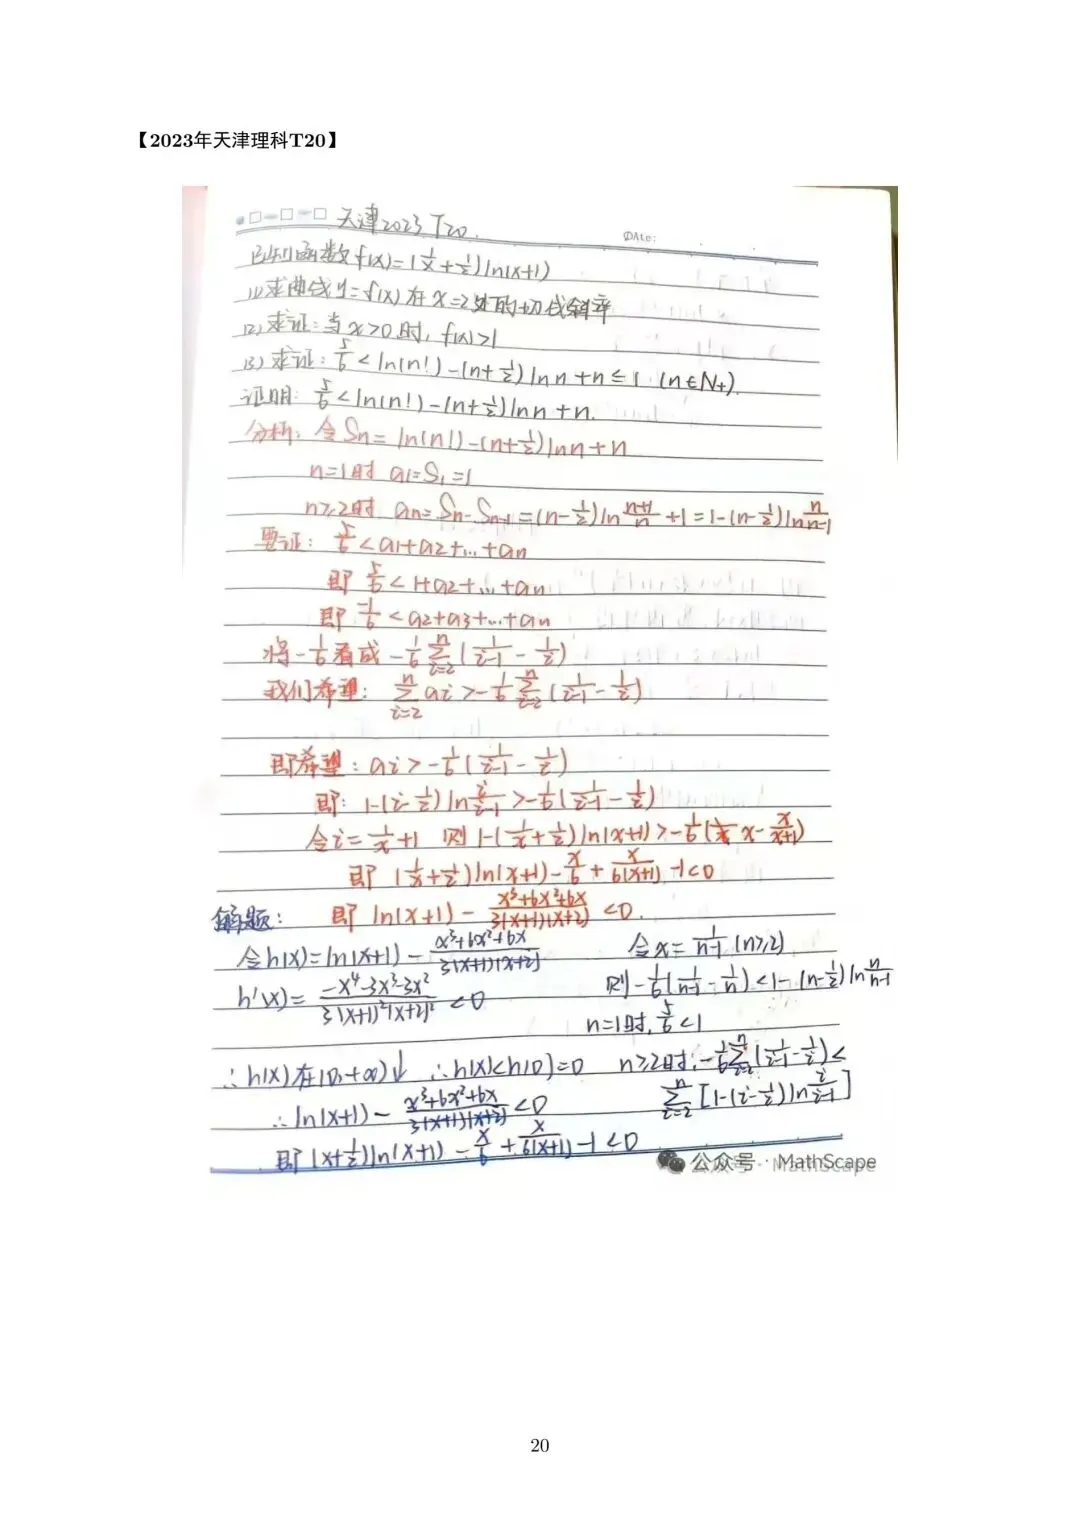 【2023年天津理科T20】
天津2023 T20.
Date:
已知函数f(x)=(1/x+1/2)ln(x+1)
(1)求曲线y=f(x)在x=2处的切线斜率
(2)求证:当x>0时,f(x)>1
(3)求证:5/6<ln(n!)-(n+1/2)lnn+n≤1 (n∈N+).
证明:5/6<ln(n!)-(n+1/2)lnn+n.
分析:令Sn=ln(n!)-(n+1/2)lnn+n
n=1时 a1=S1=1
n≥2时 an=Sn-Sn-1=(n-1/2)ln n+1/n+1=1-(n-1/2)ln n/n-1
要证:5/6<a1+a2+...+an
即 5/6<1+a2+...+an
即 -1/6<a2+a3+...+an
将-1/6看成-1/6∑(i=2→n)(1/i-1 - 1/i)
我们希望:∑(i=2→n)ai>-1/6∑(i=2→n)(1/i-1 - 1/i)
即希望:ai>-1/6(1/i-1 - 1/i)
即:1-(i-1/2)ln i/i-1>-1/6(1/i-1 - 1/i)
令i=1/x+1 则1-(1/x+1/2)ln(x+1)>-1/6(x-x/x+1)
即 (1/x+1/2)ln(x+1)-x/6+x/6(x+1)-1<0
解题: 即 ln(x+1)-x³+6x²+6x/3(x+1)(x+2)<0.
令h(x)=ln(x+1)-x³+6x²+6x/3(x+1)(x+2)
h'(x)=-x⁴-3x³-3x²/3(x+1)²(x+2)²<0
∴h(x)在(0,+∞)↓ ∴h(x)<h(0)=0
∴ln(x+1)-x³+6x²+6x/3(x+1)(x+2)<0
即(x+1/2)ln(x+1)-x/6+x/6(x+1)-1<0
令x=1/n-1(n≥2)
则-1/6(1/n-1 - 1/n)<1-(n-1/2)ln n/n-1
n=1时,5/6<1
n≥2时,-1/6∑(i=2→n)(1/i-1 - 1/i)<
∑(i=2→n)[1-(i-1/2)ln i/i-1]
公众号·MathScape
20